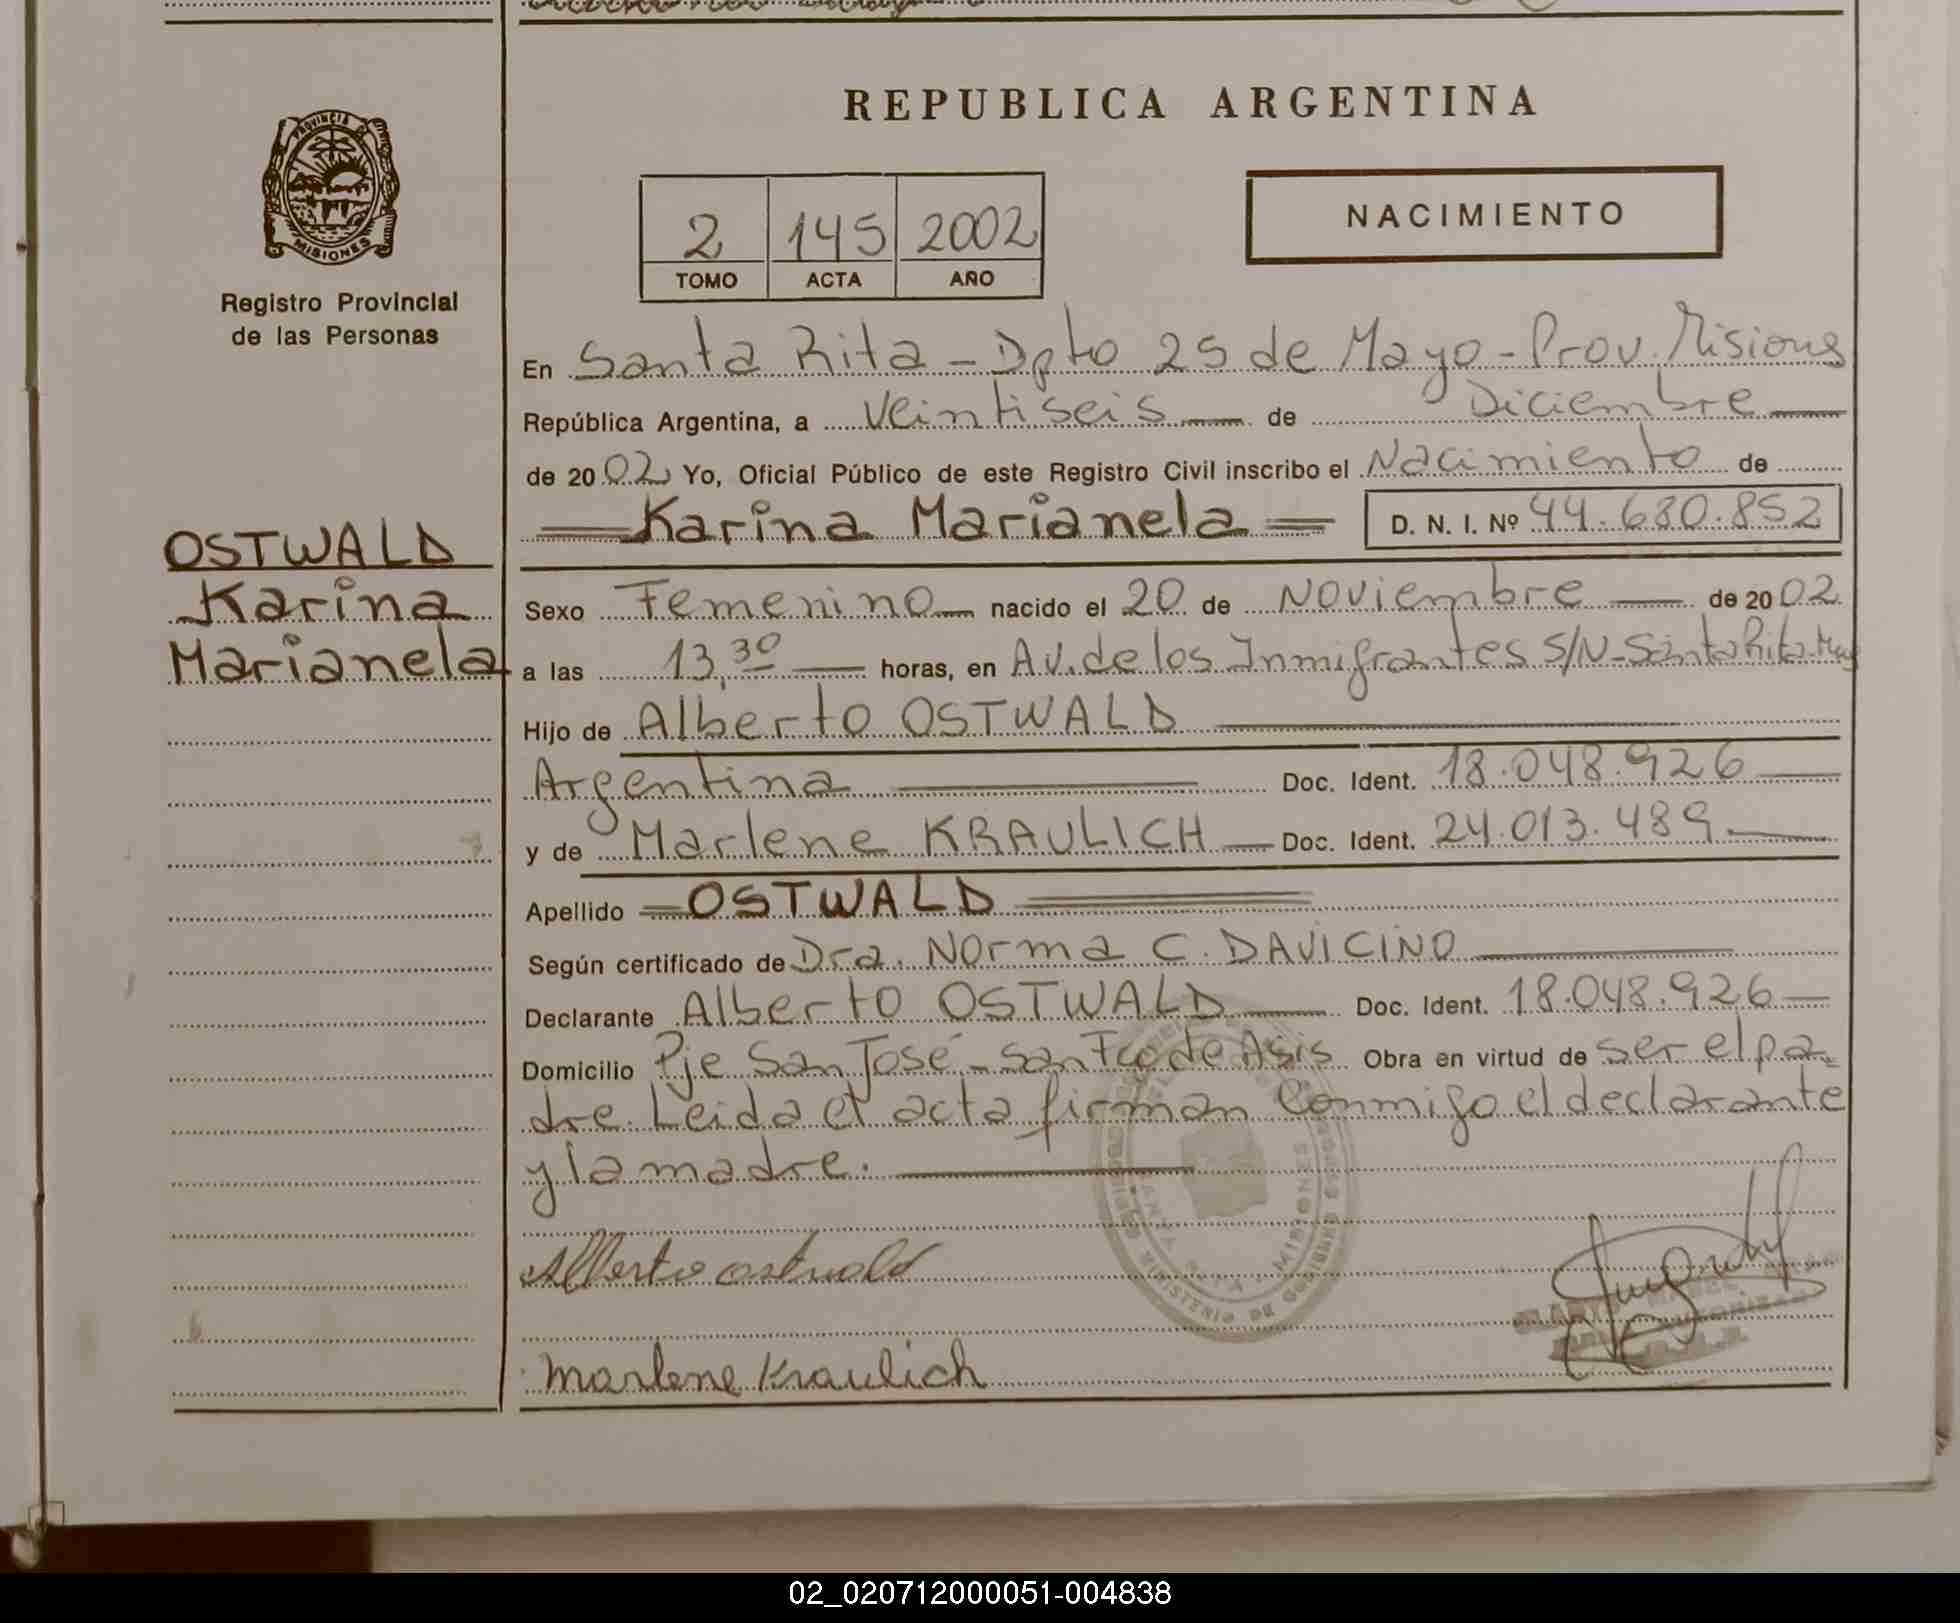 REPUBLICA ARGENTINA
PROVINCIA DE
MISIONES
Registro Provincial
de las Personas
2 145 2002
TOMO ACTA AÑO
NACIMIENTO
En Santa Rita - Dpto 25 de Mayo - Prov. Misiones
República Argentina, a Veintiseis de Diciembre
de 2002 Yo, Oficial Público de este Registro Civil inscribo el Nacimiento de
Karina Marianela D. N. I. Nº 44.680.852
OSTWALD
Karina
Marianela
Sexo Femenino nacido el 20 de Noviembre de 2002
a las 13,30 horas, en Av. de los Inmigrantes S/N - Santa Rita
Hijo de Alberto OSTWALD
Argentina Doc. Ident. 18.048.926
y de Marlene KRAULICH Doc. Ident. 24.013.489
Apellido OSTWALD
Según certificado de Dra. Norma C. DAVICINO
Declarante Alberto OSTWALD Doc. Ident. 18.048.926
Domicilio Pje San José - San Fco de Asis Obra en virtud de ser el pa-
dre. Leida el acta firman conmigo el declarante
y la madre.
MINISTERIO DE GOBIERNO
SANTA RITA - MISIONES
Alberto ostwald
Marlene Kraulich
02_020712000051-004838